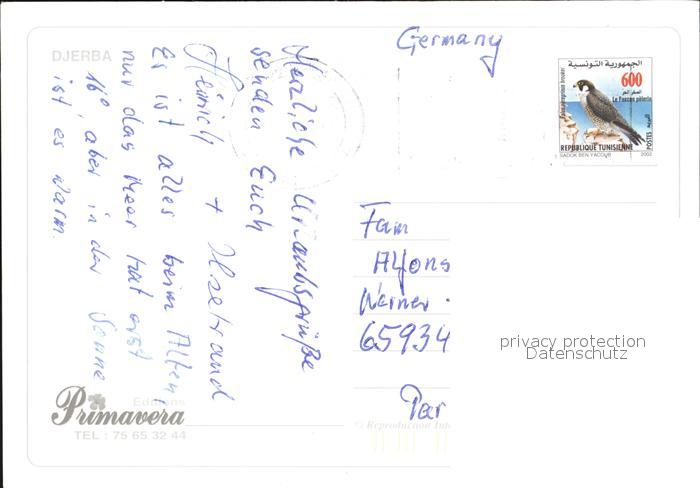 DJERBA
Herzliche Urlaubsgrüße
senden Euch
Heinrich + Ilsetraud
Es ist alles beim Alten,
nur das Meer hat erst
16°, aber in der Sonne
ist es warm.
Germany
الجمهورية التونسية
600
Falco peregrinus brookei
الصقر الحر
Le Faucon pèlerin
البريد
POSTES
REPUBLIQUE TUNISIENNE
SADOK BEN YACOUB
2002
Fam
Alfons
Werner
65934
Par
privacy protection
Datenschutz
Editions
Primavera
TEL : 75 65 32 44
© Reproduction Int